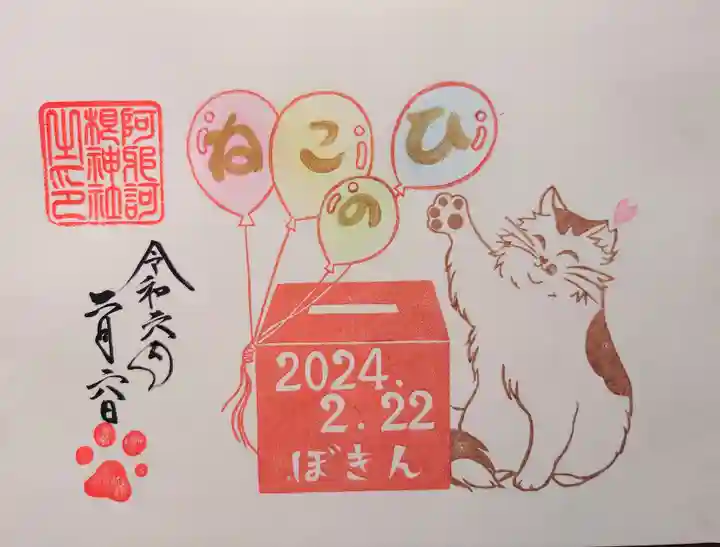 阿邪訶
根神社
之印
令和六年
二月六日
ねこのひ
2024.
2.22
ぼきん